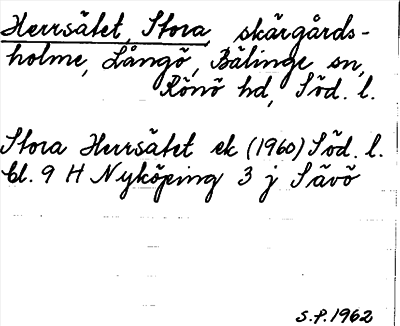 Herrsätet, Stora, skärgårds-
holme, Långö, Bälinge sn,
Rönö hd, Söd. l.
Stora Herrsätet ek (1960) Söd. l.
bl. 9 H Nyköping 3 j Sävö
S.P. 1962